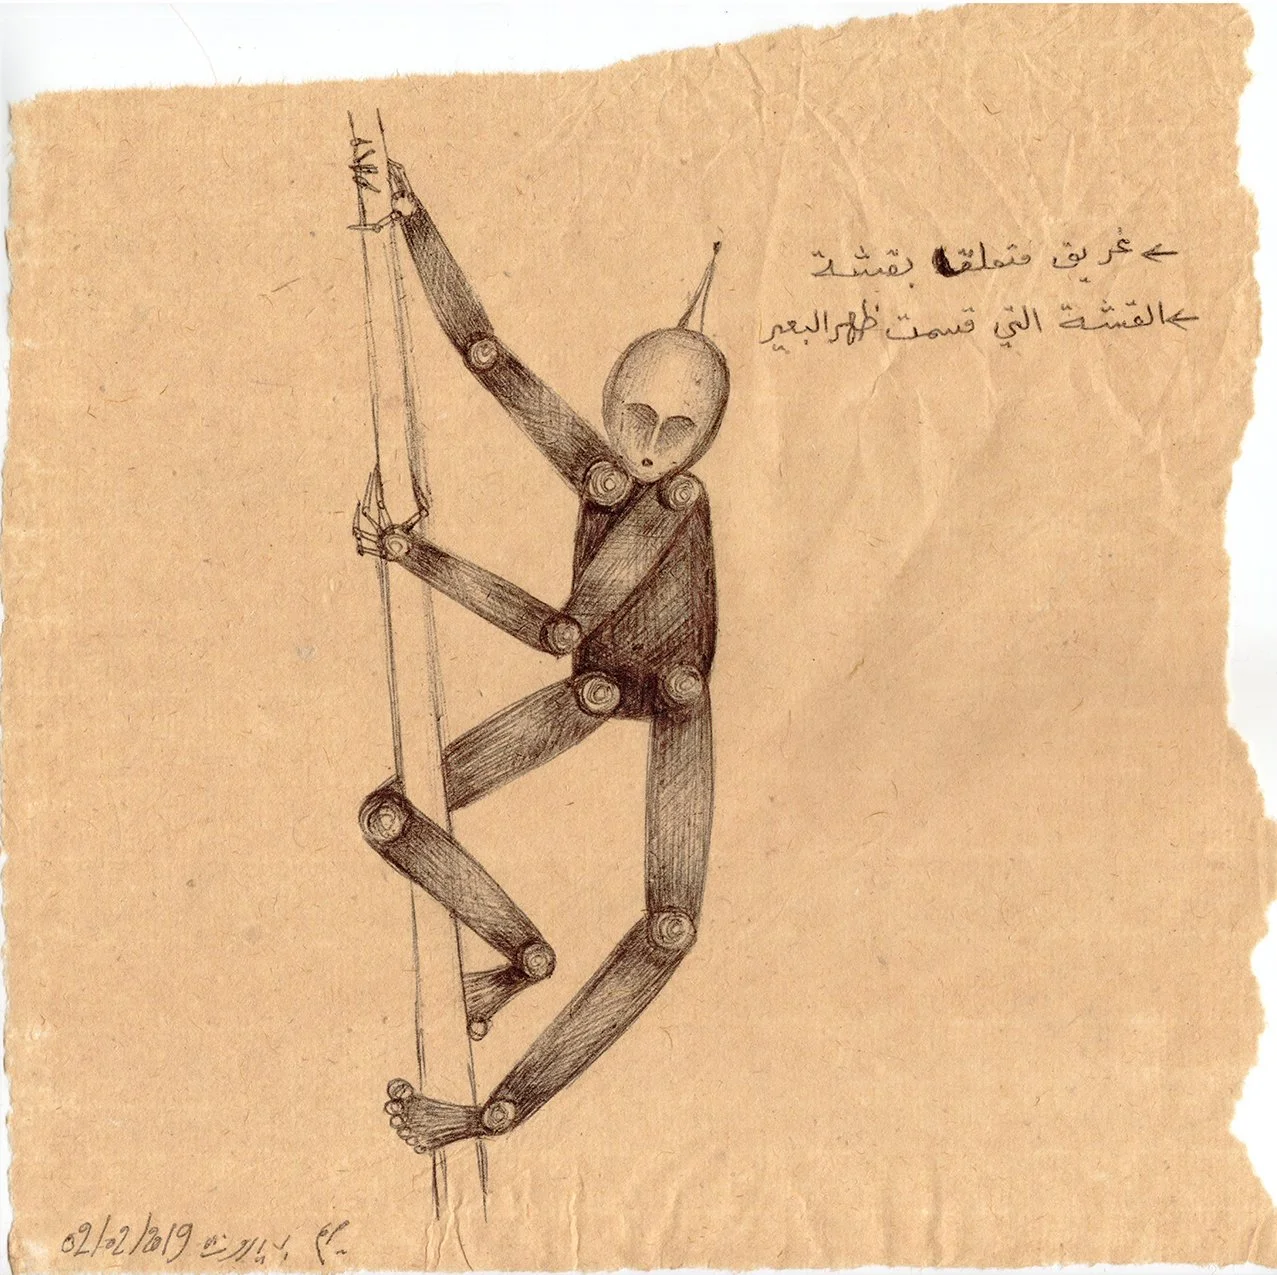 ← غريق متعلق بقشة
← القشة التي قسمت ظهر البعير
02/02/2019